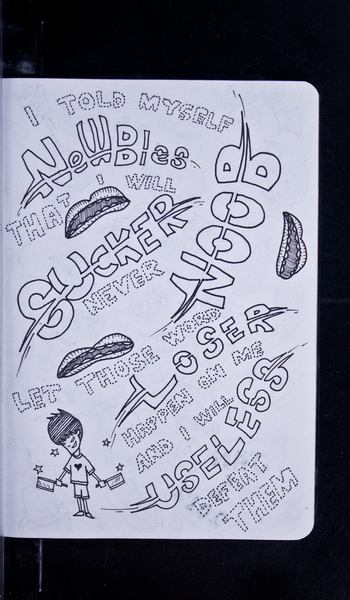 I TOLD MYSELF
NewBies
THAT I WILL
SUCKER
NOOB
NEVER
LET THOSE WORD
LOSER
HAPPEN ON ME
AND I WILL
USELESS
DEFEAT
THEM